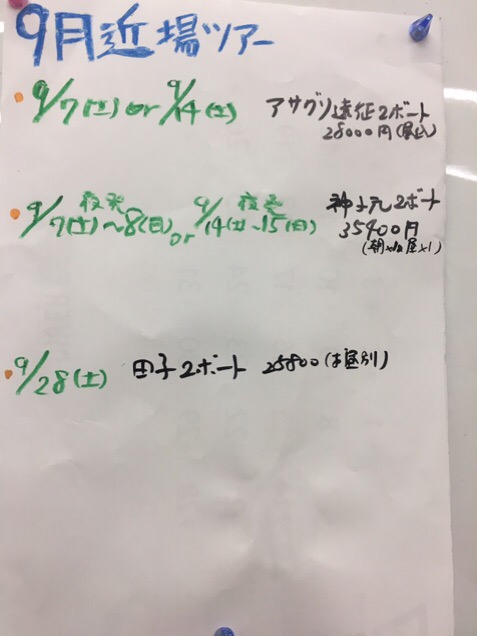 9月近場ツアー
9/7(土) or 9/14(土) アサグリ遠征2ボート
28000円(昼込)
夜発 夜発
9/7(土)~8(日) or 9/14(土)~15(日) 神子元2ボート
35400円
(朝x1 昼x1)
9/28(土) 田子2ボート 25800(昼別)